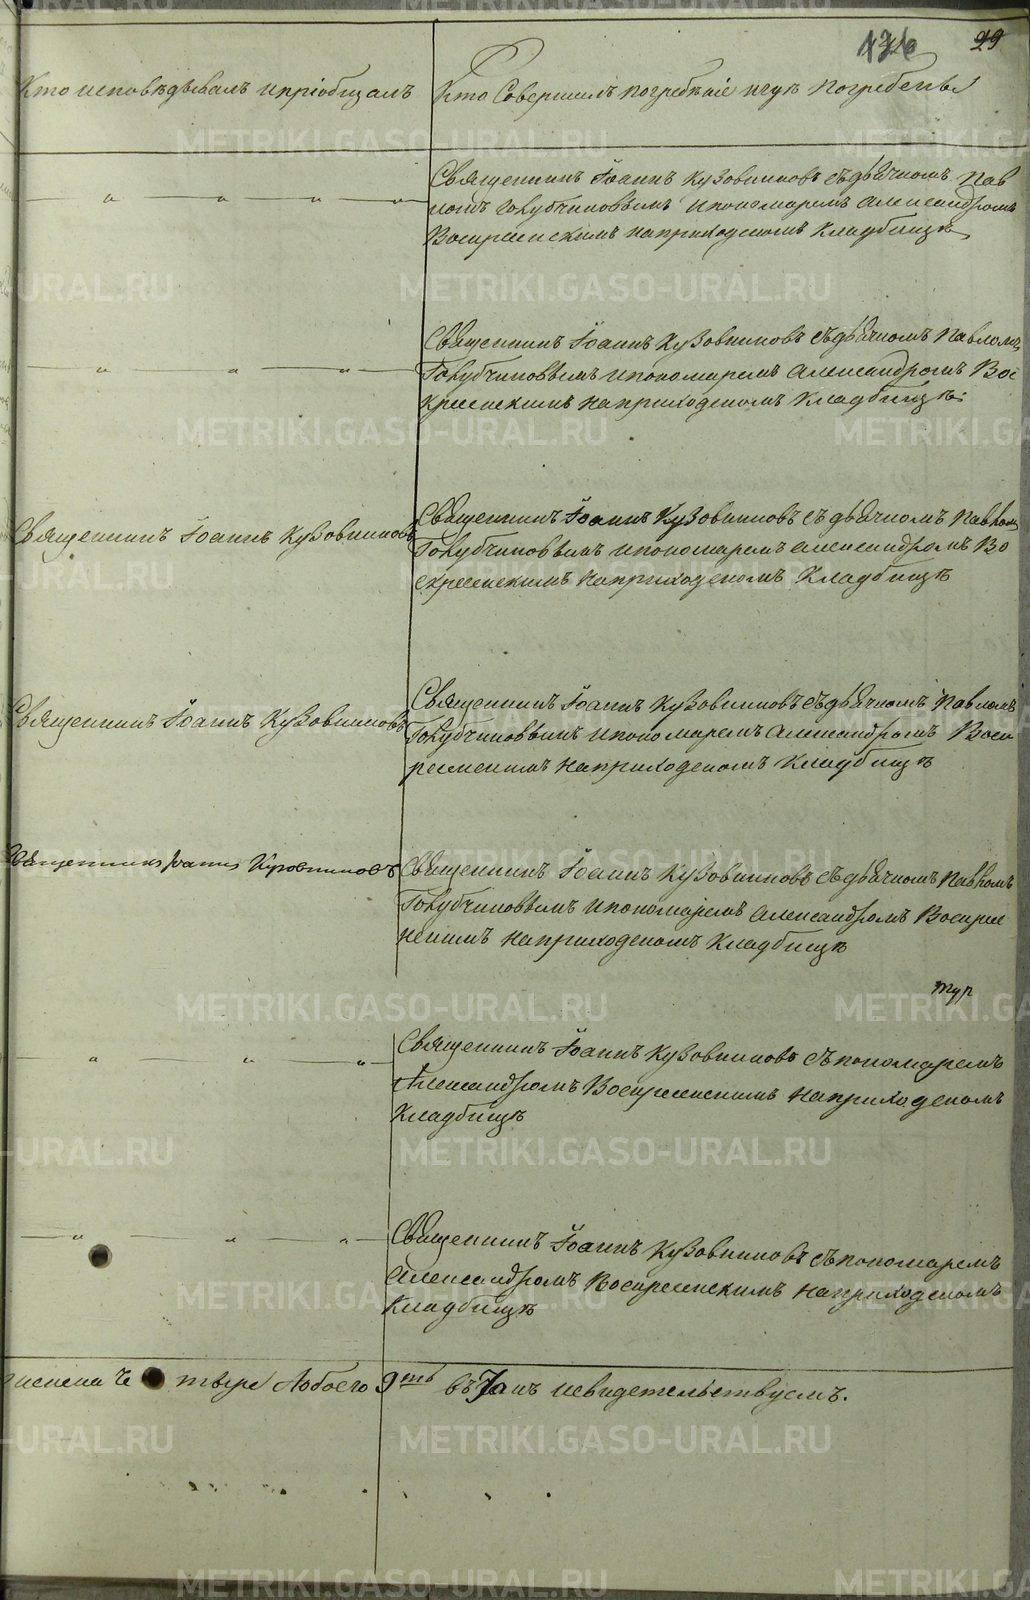 176 29
Кто исповѣдывалъ и пріобщалъ
Кто Совершилъ погребѣніе и гдѣ Погребены
Священникъ Іоаннъ Кузовниковъ съ дьячкомъ Пав
ломъ Голубчиковымъ и пономаремъ Александромъ
Воскресенскимъ на приходскомъ Кладбищѣ
Священникъ Іоаннъ Кузовниковъ съ дьячкомъ Павломъ
Голубчиковымъ и пономаремъ Александромъ Вос
кресенскимъ на приходскомъ Кладбищѣ.
Священникъ Іоаннъ Кузовниковъ
Священникъ Іоаннъ Кузовниковъ съ дьячкомъ Павломъ
Голубчиковымъ и пономаремъ Александромъ Во
скресенскимъ на приходскомъ Кладбищѣ
Священникъ Іоаннъ Кузовниковъ
Священникъ Іоаннъ Кузовниковъ съ дьячкомъ Павломъ
Голубчиковымъ и пономаремъ Александромъ Воск
ресенскимъ на приходскомъ Кладбищѣ
Священникъ Іоаннъ Кузовниковъ
Священникъ Іоаннъ Кузовниковъ съ дьячкомъ Павломъ
Голубчиковымъ и пономаремъ Александромъ Воскресе
нскимъ на приходскомъ Кладбищѣ
Священникъ Іоаннъ Кузовниковъ съ пономаремъ
Александромъ Воскресенскимъ на приходскомъ
Кладбищѣ
Священникъ Іоаннъ Кузовниковъ съ пономаремъ
Александромъ Воскресенскимъ на приходскомъ
Кладбищѣ
обоего въ томъ и свидетельствуемъ.
METRIKI.GASO-URAL.RU